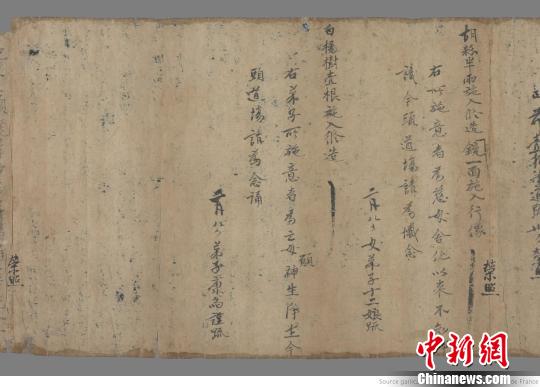 榮照
胡粉半兩施入修造 鏡一面施入行像
右所施意者為慈母舍化以來不知
今頭道場請為懺念
二月八日女弟子十二娘疏
白楊樹壹根施入修造
右弟子所施意者為亡女神生淨土今
願
頭道場請為念誦
月八日弟子
謹疏
榮照
Source gallica
de France
中新网
Chinanews.com